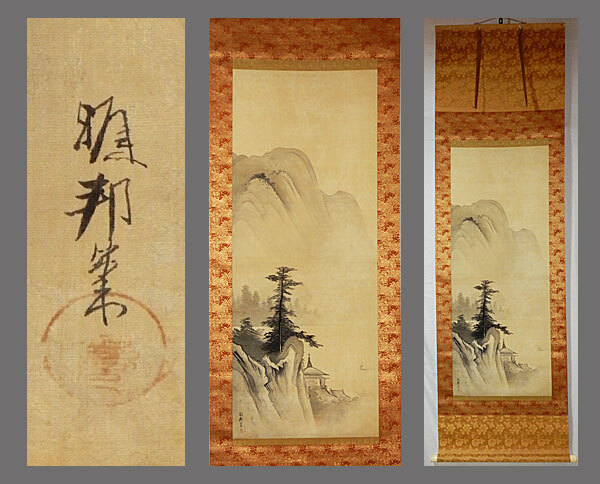 雅邦筆